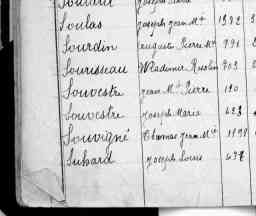 Soulas Joseph Jean Mie 1372
Sourdin auguste Pierre Mie 791
Sourisseau Wladimir 703
Souvestre Jean Mie Pierre 120
Souvestre Joseph Marie 423
Souvigné Thomas Jean Mie 1198
Suhard Joseph Louis 437